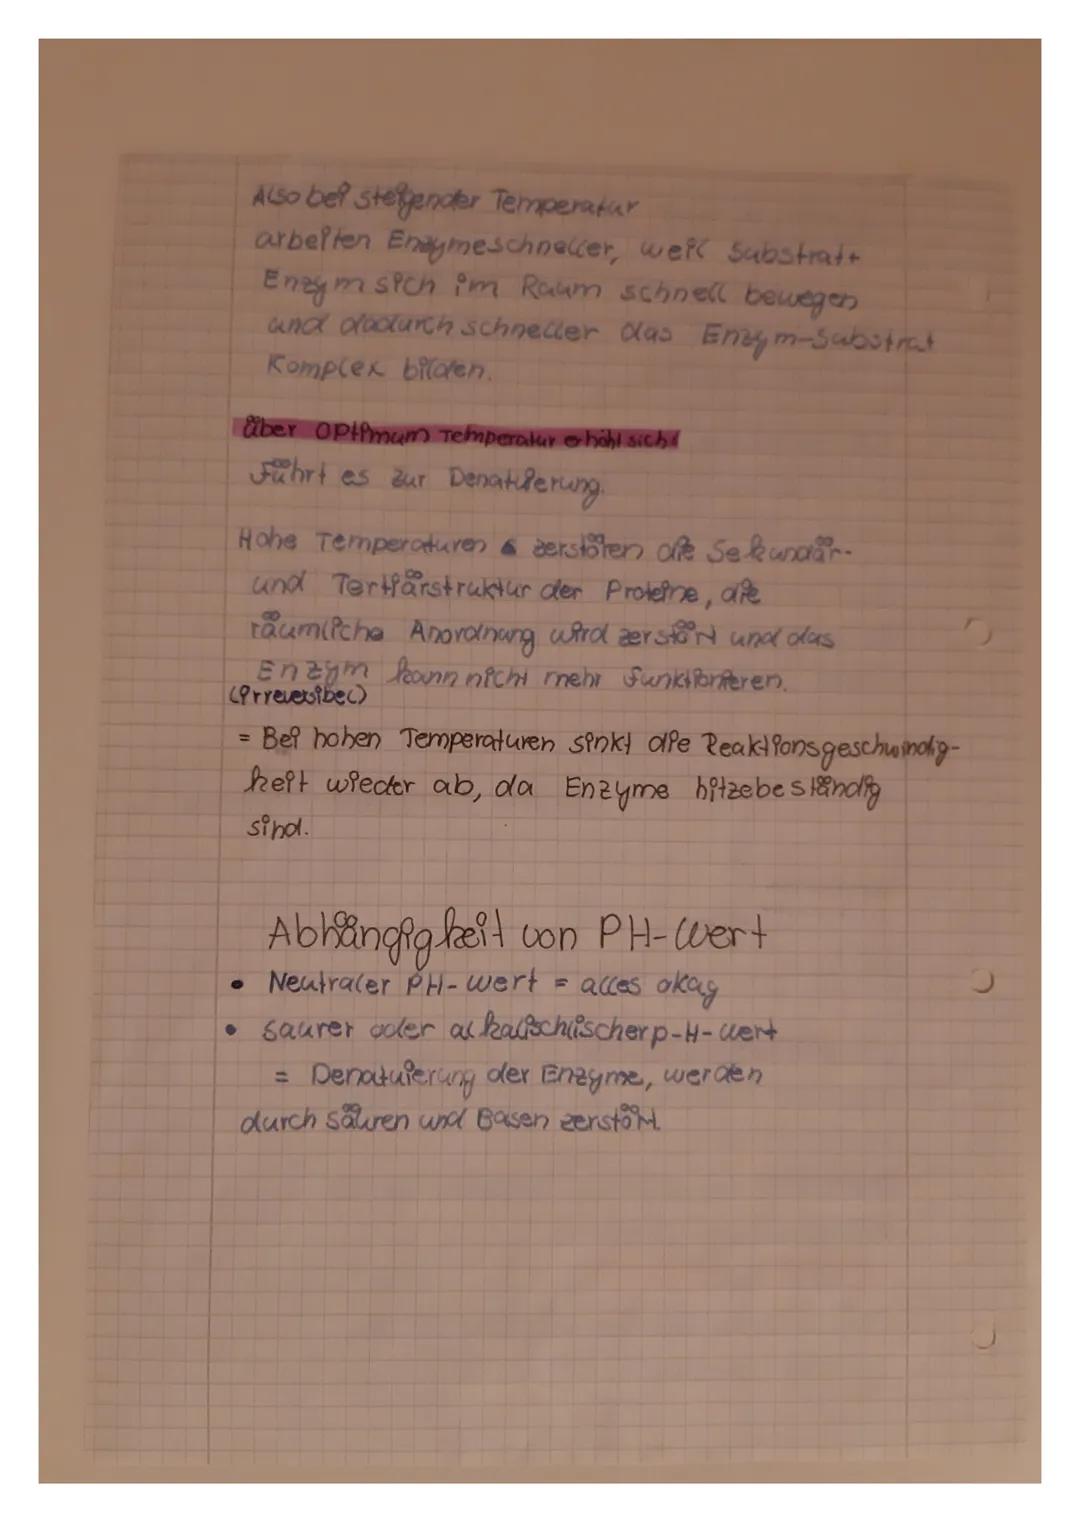 Also bei steigender Temperatur
arbeiten Enzyme schneller, weil Substrat+
Enzym sich im Raum schnell bewegen
und dadurch schneller das Enzym-Substrat
Komplex bilden.
über Optimum Temperatur erhöht sich!
Führt es zur Denatuierung.
Hohe Temperaturen zerstören die Sekundär-
und Tertiärstruktur der Proteine, die
räumliche Anordnung wird zerstört und das
Enzym kann nicht mehr funktionieren.
(irreversibel)
= Bei hohen Temperaturen sinkt die Reaktionsgeschwindig-
keit wieder ab, da Enzyme hitzebeständig
sind.
Abhängigkeit von PH-Wert
• Neutraler PH-wert = alles okay
• saurer oder alkalischlischer p-H-wert
= Denatuierung der Enzyme, werden
durch Säuren und Basen zerstört